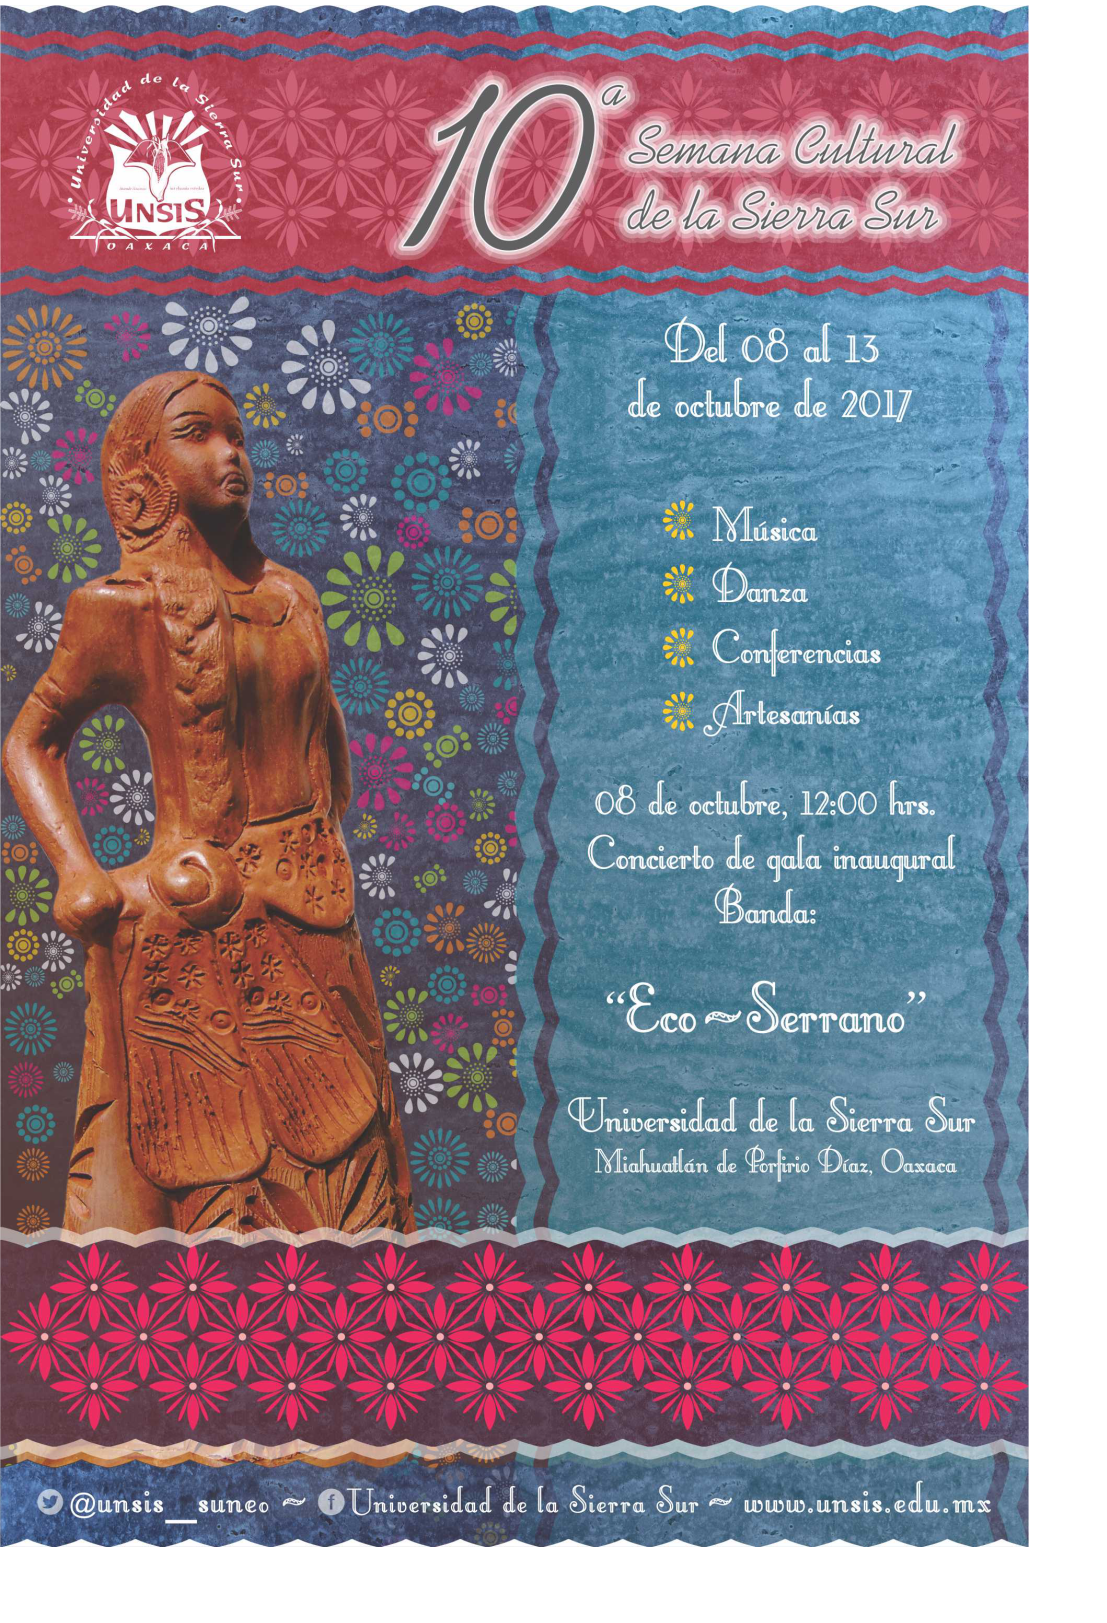 Universidad de la Sierra Sur
UNSIS
OAXACA
10a
Semana Cultural
de la Sierra Sur
Del 08 al 13
de octubre de 2017
Música
Danza
Conferencias
Artesanías
08 de octubre, 12:00 hrs.
Concierto de gala inaugural
Banda:
“Eco~Serrano”
Universidad de la Sierra Sur
Miahuatlán de Porfirio Díaz, Oaxaca
@unsis_suneo ~ f Universidad de la Sierra Sur ~ www.unsis.edu.mx